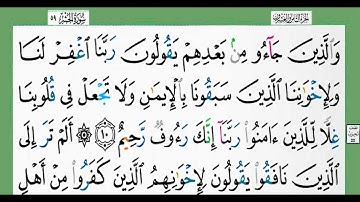 سورة الحشر ٥٩
الجزء الثامن والعشرون
وَٱلَّذِينَ جَآءُو مِنۢ بَعْدِهِمْ يَقُولُونَ رَبَّنَا ٱغْفِرْ لَنَا
وَلِإِخْوَٰنِنَا ٱلَّذِينَ سَبَقُونَا بِٱلْإِيمَٰنِ وَلَا تَجْعَلْ فِى قُلُوبِنَا
غِلًّا لِّلَّذِينَ ءَامَنُوا۟ رَبَّنَآ إِنَّكَ رَءُوفٌ رَّحِيمٌ ١٠ ۞ أَلَمْ تَرَ إِلَى
ٱلَّذِينَ نَافَقُوا۟ يَقُولُونَ لِإِخْوَٰنِهِمُ ٱلَّذِينَ كَفَرُوا۟ مِنْ أَهْلِ